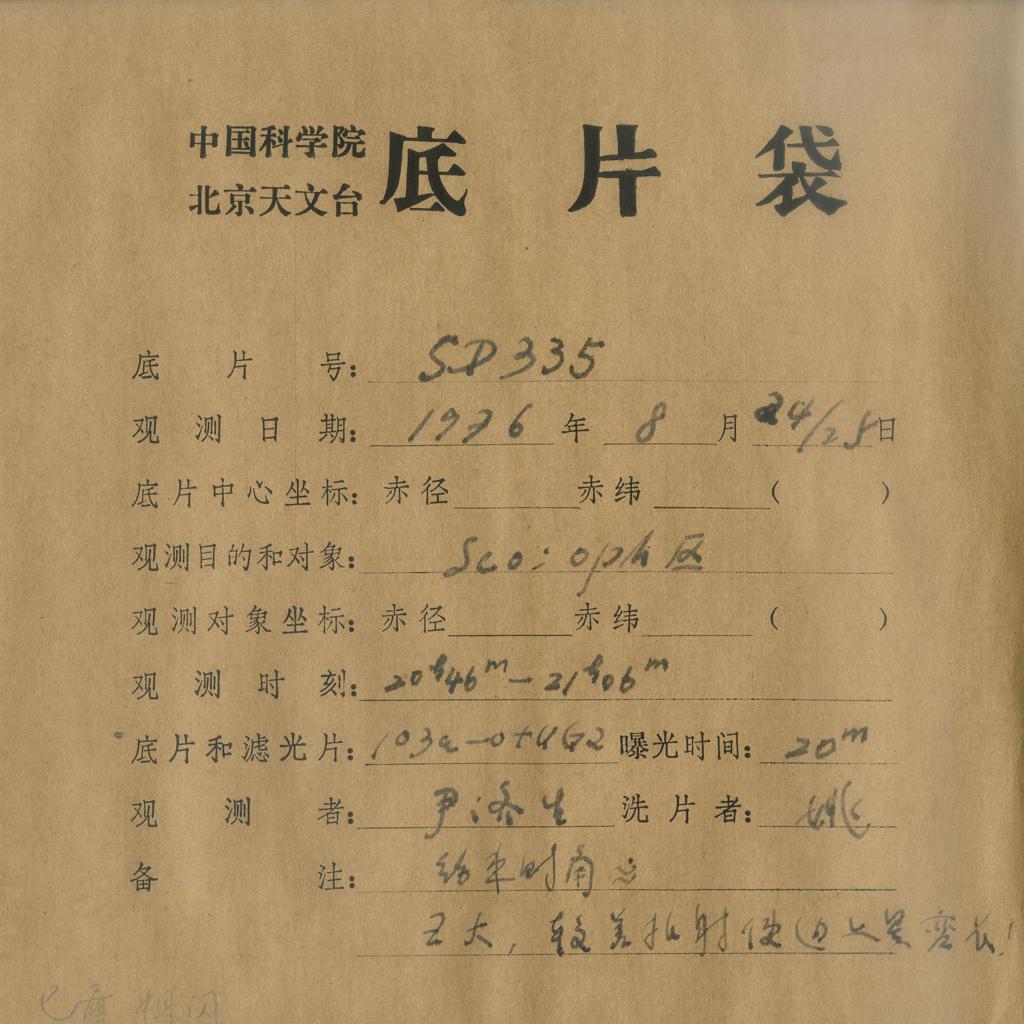 中国科学院
北京天文台
底片袋
底片号: SP335
观测日期: 1976年 8月 24/25日
底片中心坐标: 赤径 赤纬 ( )
观测目的和对象: Sco: oph 区
观测对象坐标: 赤径 赤纬 ( )
观测时刻: 20h46m—21h06m
底片和滤光片: 103a-O+UG2 曝光时间: 20m
观测者: 尹济生 洗片者: 姚
备注: 结束时角
大, 较差折射使 星变长!